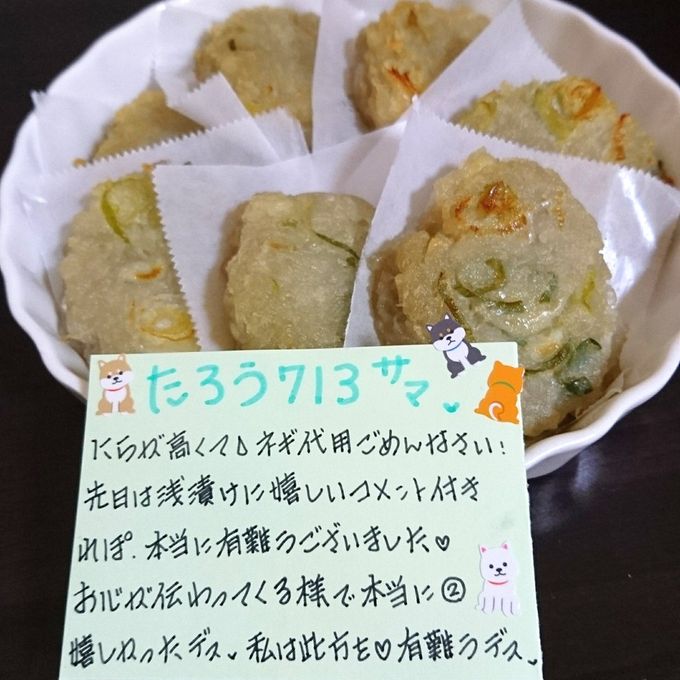 たろう713サマ
にらが高くて♪ネギ代用ごめんなさい!
先日は浅漬けに嬉しいコメント付き
れぽ、本当に有難うございました♡
お心が伝わってくる様で本当に②
嬉しかったデス。私は此方を♡有難うデス。